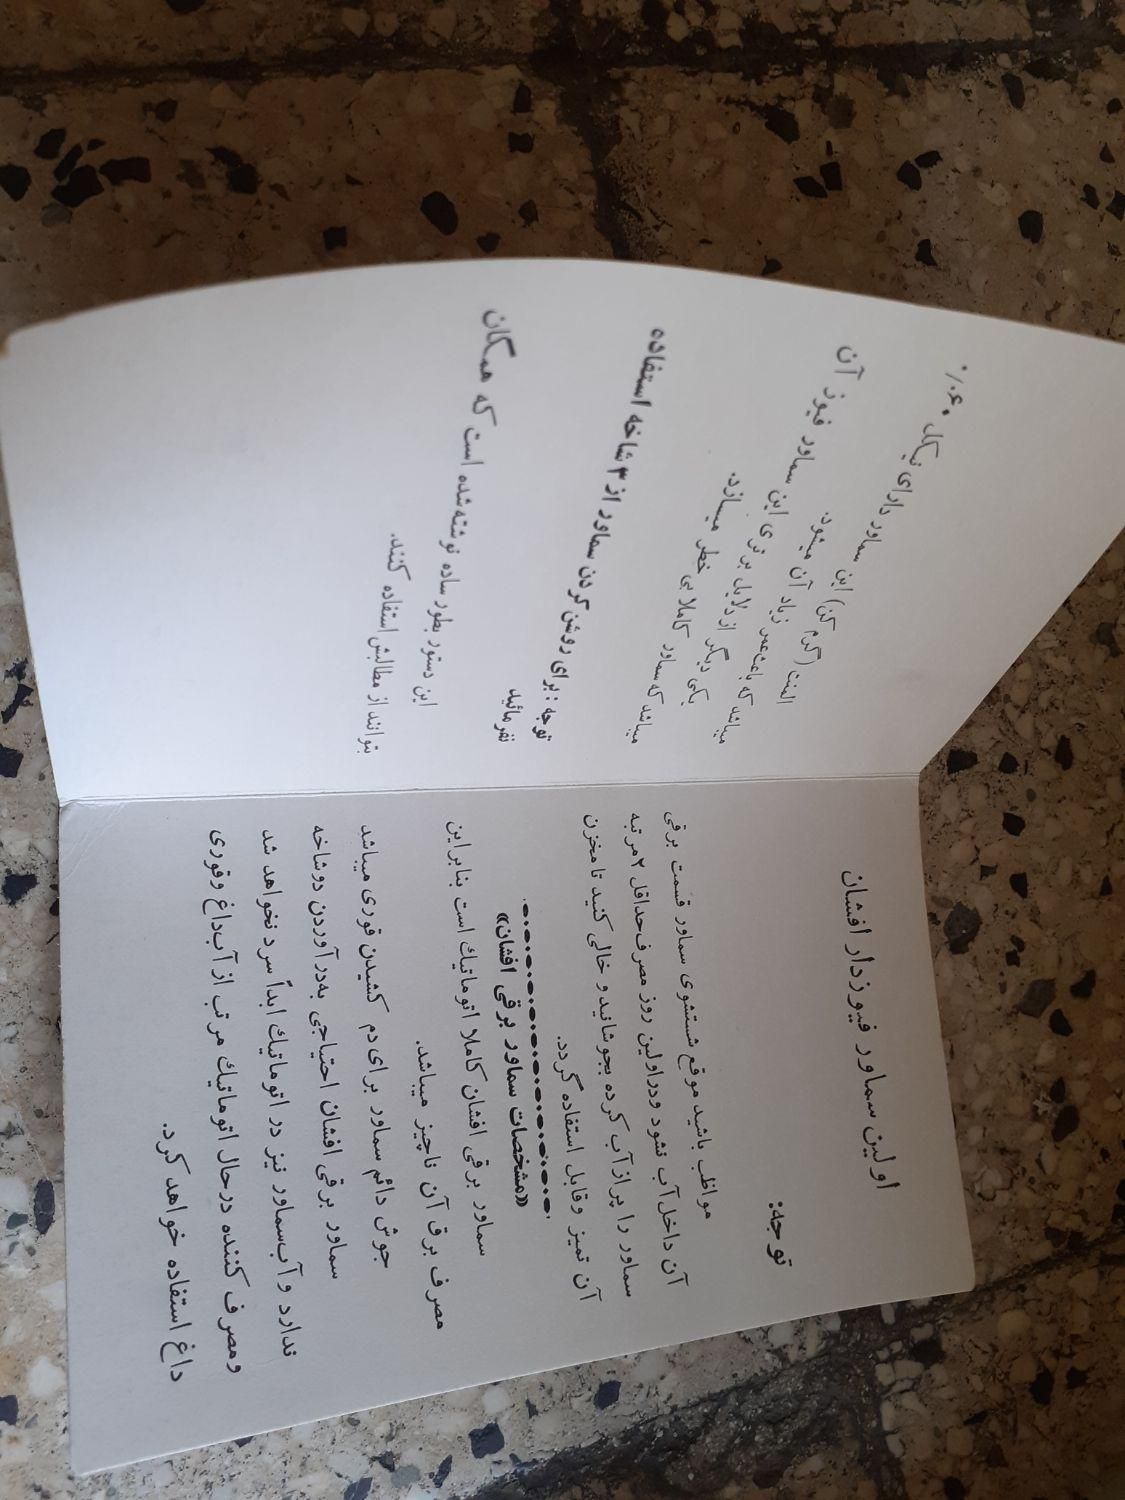 اولین سماور فیوزدار افشان
توجه:
مواظب باشید موقع شستشوی سماور قسمت برقی
آن داخل آب نشود ودراولین روز مصرف حداقل ۲ مرتبه
سماور را پر از آب کرده بجوشانید و خالی کنید تا مخزن
آن تمیز وقابل استفاده گردد.
«مشخصات سماور برقی افشان»
سماور برقی افشان کاملا اتوماتیك است بنابراین
مصرف برق آن ناچیز میباشد.
جوش دائم سماور برای دم کشیدن قوری میباشد
سماور برقی افشان احتیاجی به درآوردن دوشاخه
ندارد و آب سماور نیز در اتوماتیك ابداً سرد نخواهد شد
ومصرف کننده درحال اتوماتیك مرتب از آب داغ وقوری
داغ استفاده خواهد کرد.
المنت (گرم کن) این سماور دارای نیکل ۶۰٪
میباشد که باعث عمر زیاد آن میشود.
یکی دیگر از دلایل برتری این سماور فیوز آن
میباشد که سماور کاملا بی خطر میسازد.
توجه : برای روشن کردن سماور از ۳ شاخه استفاده
نفرمائید
این دستور بطور ساده نوشته شده است که همگان
بتوانند از مطالبش استفاده کنند.